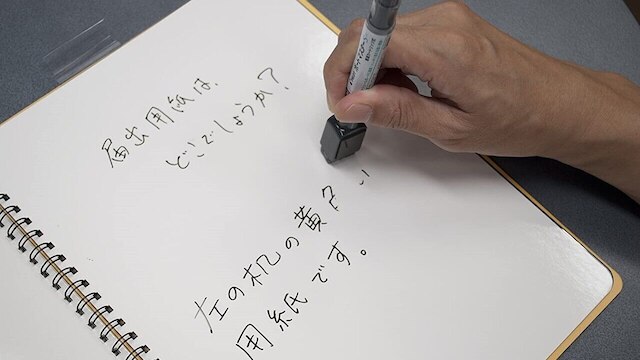 届出用紙は、
どこでしょうか？
左の机の黄色い
用紙です。